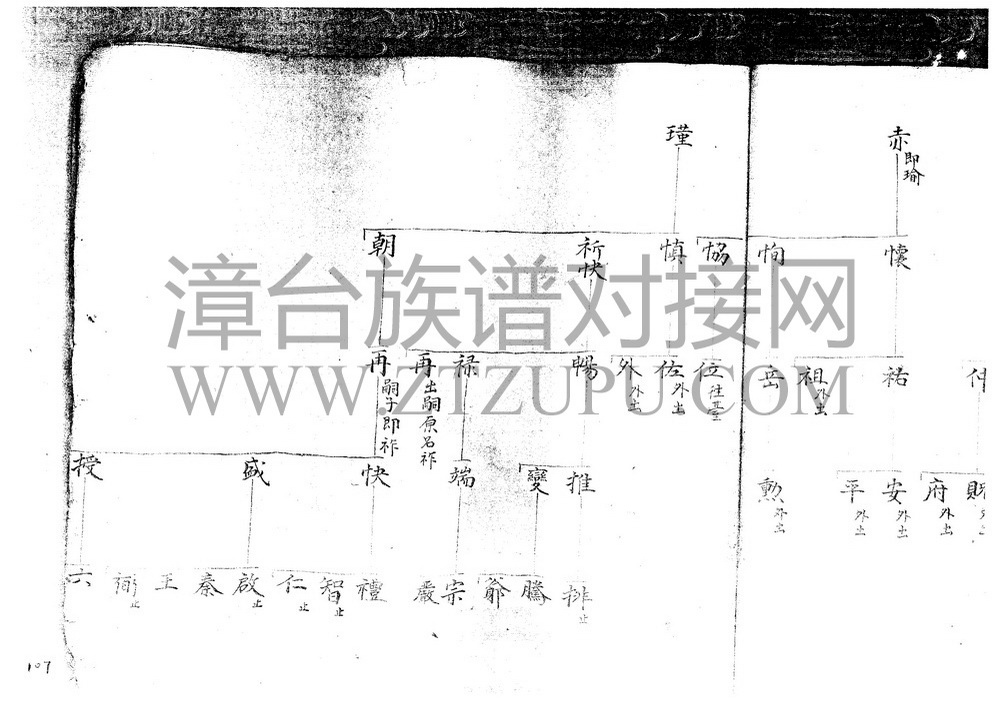 赤
即瑜
瑾
懷
恂
協
慎
祈快
朝
祐
祖
外出
岳
位
往臺
佐
外出
外
外出
暢
祿
再
出嗣原名祚
再
嗣子即祚
府
外出
安
外出
平
外出
勲
外出
推
變
端
快
盛
授
排
止
騰
爺
宗
嚴
禮
智
止
仁
止
啟
止
秦
王
弼
止
六
漳台族谱对接网
WWW.ZTZUPU.COM
107